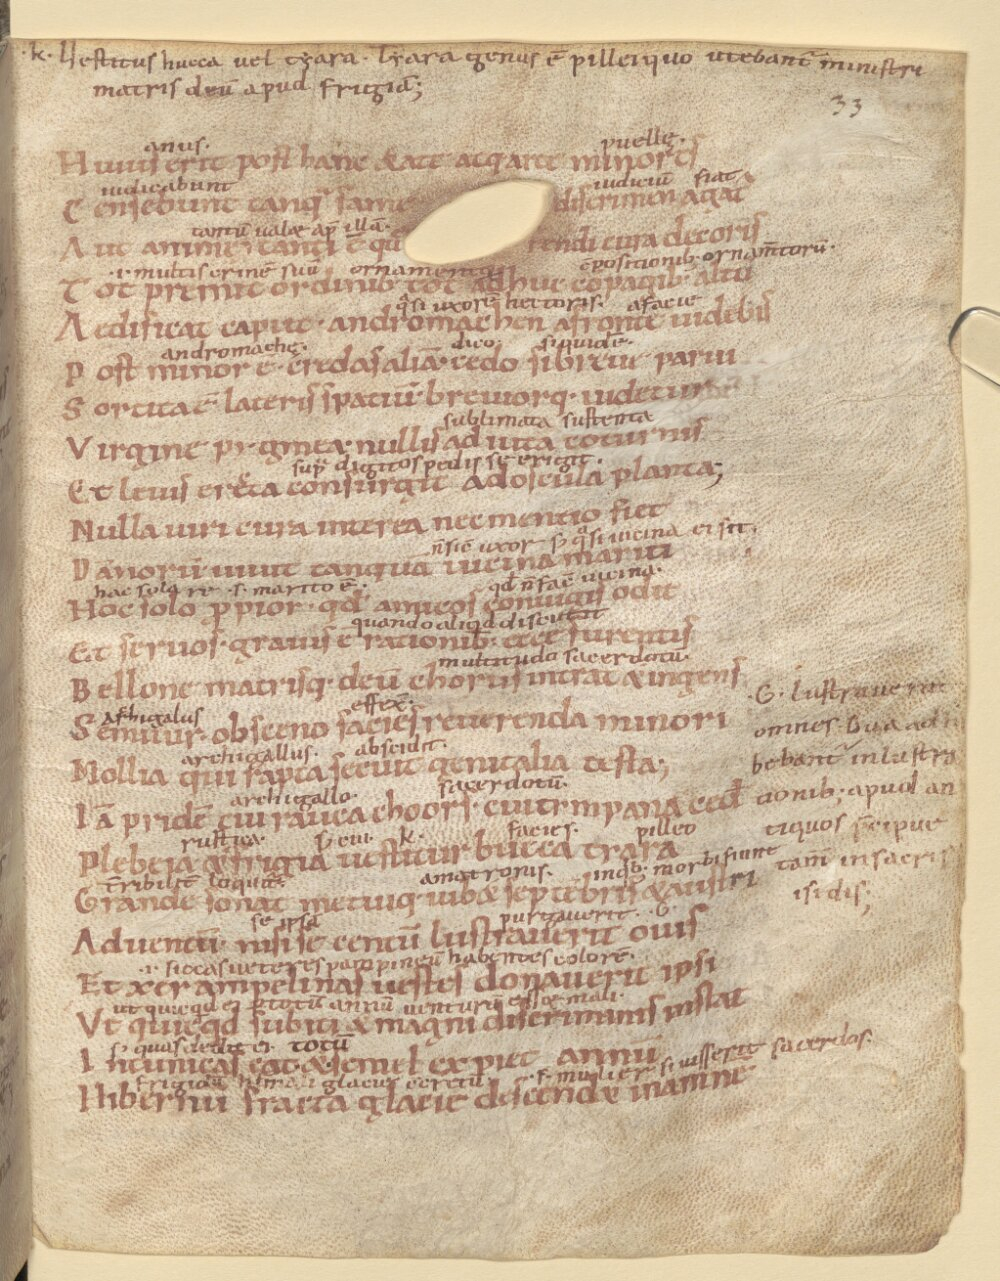 ·k· Vestitus bucca uel tyara· Tyara genus ē pillei quo utebant̄ ministri
matris deū apud frigiā;
33
anus· puelle·
Huius erit post hanc ætate atq; arte minoris
iudicabunt iudiciū fiat
Censebunt tanqꝫ fame discrimen agat
tantū ualæ ap illā·
Aut anime tanti ē qu rendi cura decoris
·i· multis crinē suū ornamentis cpositionibꝫ ornam̄torū·
Tot premit ordinibꝫ tot adhuc cōpagibꝫ altū
qͣsi uxorē hectoris· a facie
Aedificat caput· andromachen afronte uidebis
andromache· dico siquidē·
Post minor ē· credas aliā· cedo si breue parui
Sortita ē lateris spatiū· breuiorqꝫ uidetur
sublimata sustenta
Virgine pigmea· nullis adiuta coturnis
sup̄ digitos pedis se erigit·
Et leuis erecta consurgit ad oscula planta;
Nulla uiri cura interea nec mentio fiet
n̄ sic uxor sꝫ qͣsi uicina ei sit·
Danorū uiuit tanquā uicina mariti
hac sola re ·s· marito ē· qd̄ n̄ fac̄ uicina·
Hoc solo ꝓpior· qd̄ amicos coniugis odit
quando aliqd discutiat
Et seruos· grauis ē rationibꝫ· ecce furentis
multitudo sacerdotū·
Bellone matrisqꝫ deū chorus intrat & ingens
Archigalus effex̄·
Semiuir obsceno facies reuerenda minori
archigallus· abscidit·
Mollia qui rapta secuit genitalia testa;
archigallo· sacerdotū·
Iā pridē cui rauca choors· cui timpana cedt̄
rustica· k· facies· pilleo
Plebeia & frigia uestitur bucca tyara
t̄ribilit̄ loquit̄ a matronis· morbi fiunt
Grande sonat metuiqꝫ iubæ septēbris & austri
se ipsā purgauerit· ·G·
Aduentū· nisi se centū lustrauerit ouis
·i· siccas ueteres pampineū habentes colorē·
Et xerampelinas uestes donauerit ipsi
ut quicqd ei p totū annū uenturū esset mali·
Vt quicqd subiti & magni discriminis instat
sꝫ quas dedit ei· totū
In tunicas eat & semel expiet annū
frigidū hiemali glacie ·s· mulier si iusserit sacerdos·
Hibernū fracta glacie descendæ inamnē
·G· Lustrauerit
omnes
bebant̄ in lustra
tionibꝫ· apud an
tiquos p̄cipue
tam̄ in sacris
isidis;